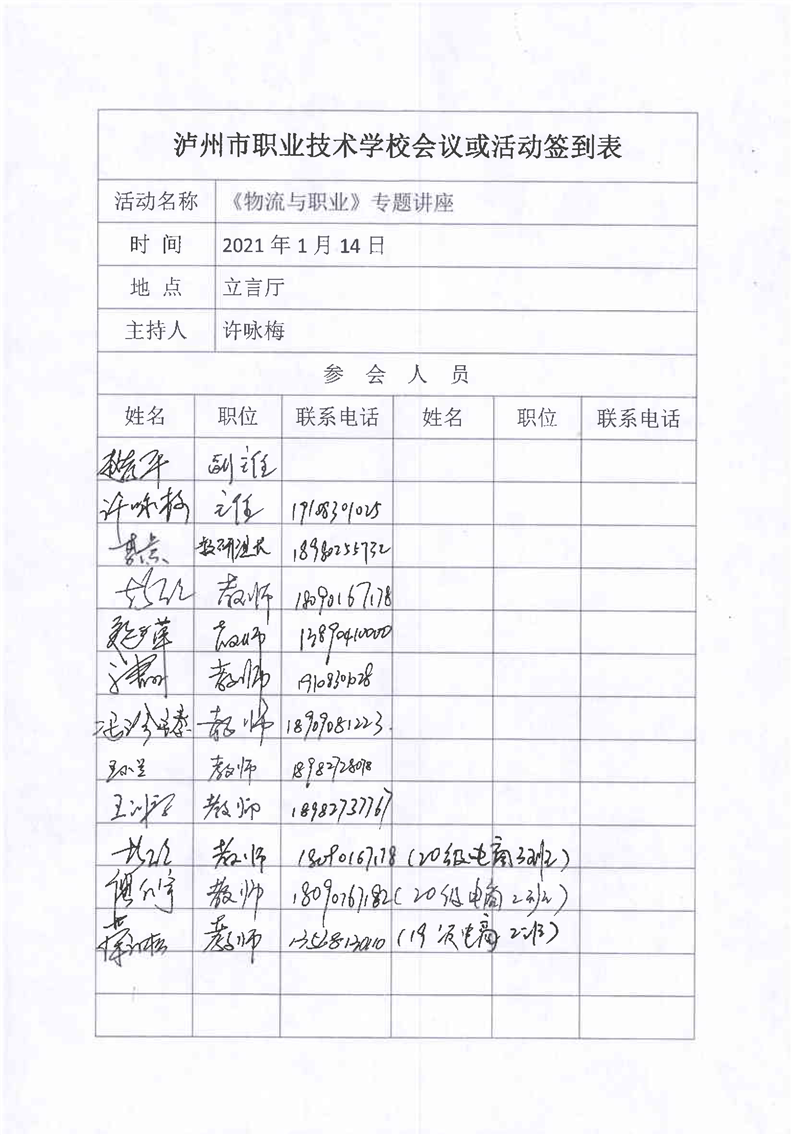 泸州市职业技术学校会议或活动签到表
活动名称 《物流与职业》专题讲座
时 间 2021 年 1 月 14 日
地 点 立言厅
主持人 许咏梅
参 会 人 员
姓名 职位 联系电话 姓名 职位 联系电话
副主任
许咏梅 主任 19108301025
教研组长 18980255732
教师 18090167178
教师 13890410000
教师
教师 18909081223
王小兰 教师
教师 18982737767
教师 18090167178 (20级电商3班)
教师 18090767182 (20级电商2班)
教师 (19级电商2班)